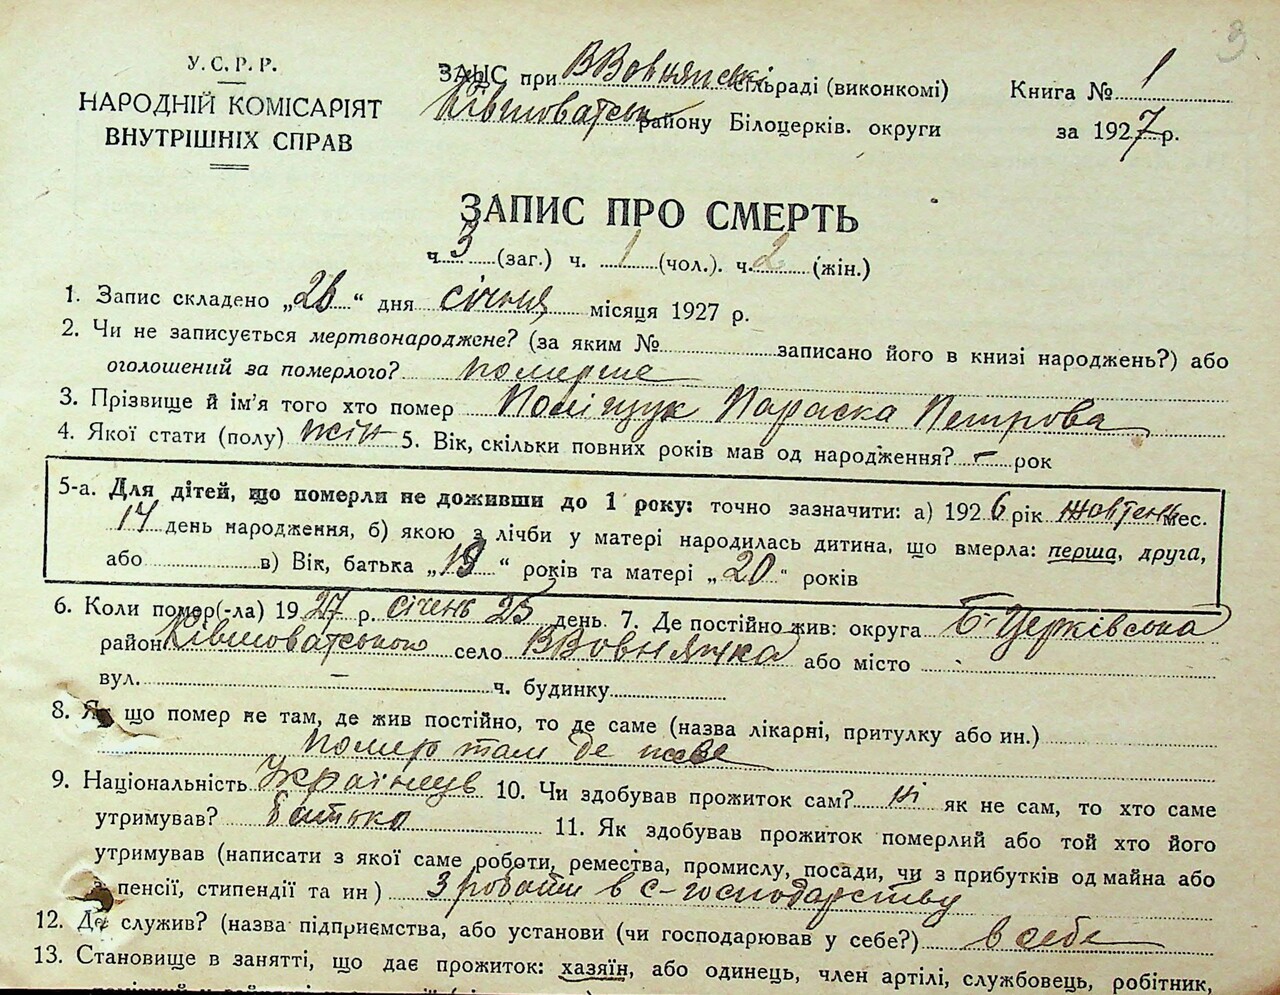 3
У.С.Р.Р.
НАРОДНІЙ КОМІСАРІЯТ
ВНУТРІШНІХ СПРАВ
ЗАЦС при ВВовнянські сільраді (виконкомі)
Ківшоватськ району Білоцерків. округи
Книга № 1
за 1927 р.
ЗАПИС ПРО СМЕРТЬ
ч. 3 (заг.) ч. 1 (чол.). ч. 2 (жін.)
1. Запис складено „26“ дня січня місяця 1927 р.
2. Чи не записується мертвонароджене? (за яким № записано його в книзі народжень?) або
оголошений за померлого? померше
3. Прізвище й ім'я того хто помер Поліщук Параска Петрова
4. Якої стати (полу) жін 5. Вік, скільки повних років мав од народження? - рок
5-а. Для дітей, що померли не доживши до 1 року: точно зазначити: а) 1926 рік жовтень мес.
14 день народження, б) якою з лічби у матері народилась дитина, що вмерла: перша, друга,
або в) Вік, батька „19“ років та матері „20“ років
6. Коли помер(-ла) 1927 р. січень 25 день 7. Де постійно жив: округа Б-Церківська
район Ківшоватською село ВВовнянка або місто -
вул. - ч. будинку
8. Як що помер не там, де жив постійно, то де саме (назва лікарні, притулку або ин.)
помер там де жеве
9. Національність Українців 10. Чи здобував прожиток сам? ні як не сам, то хто саме
утримував? батько 11. Як здобував прожиток померлий або той хто його
утримував (написати з якої саме роботи, ремества, промислу, посади, чи з прибутків од майна або
з пенсії, стипендії та ин) З роботи в с-господарству
12. Де служив? (назва підприємства, або установи (чи господарював у себе?) в себе
13. Становище в занятті, що дає прожиток: хазяїн, або одинець, член артілі, службовець, робітник,